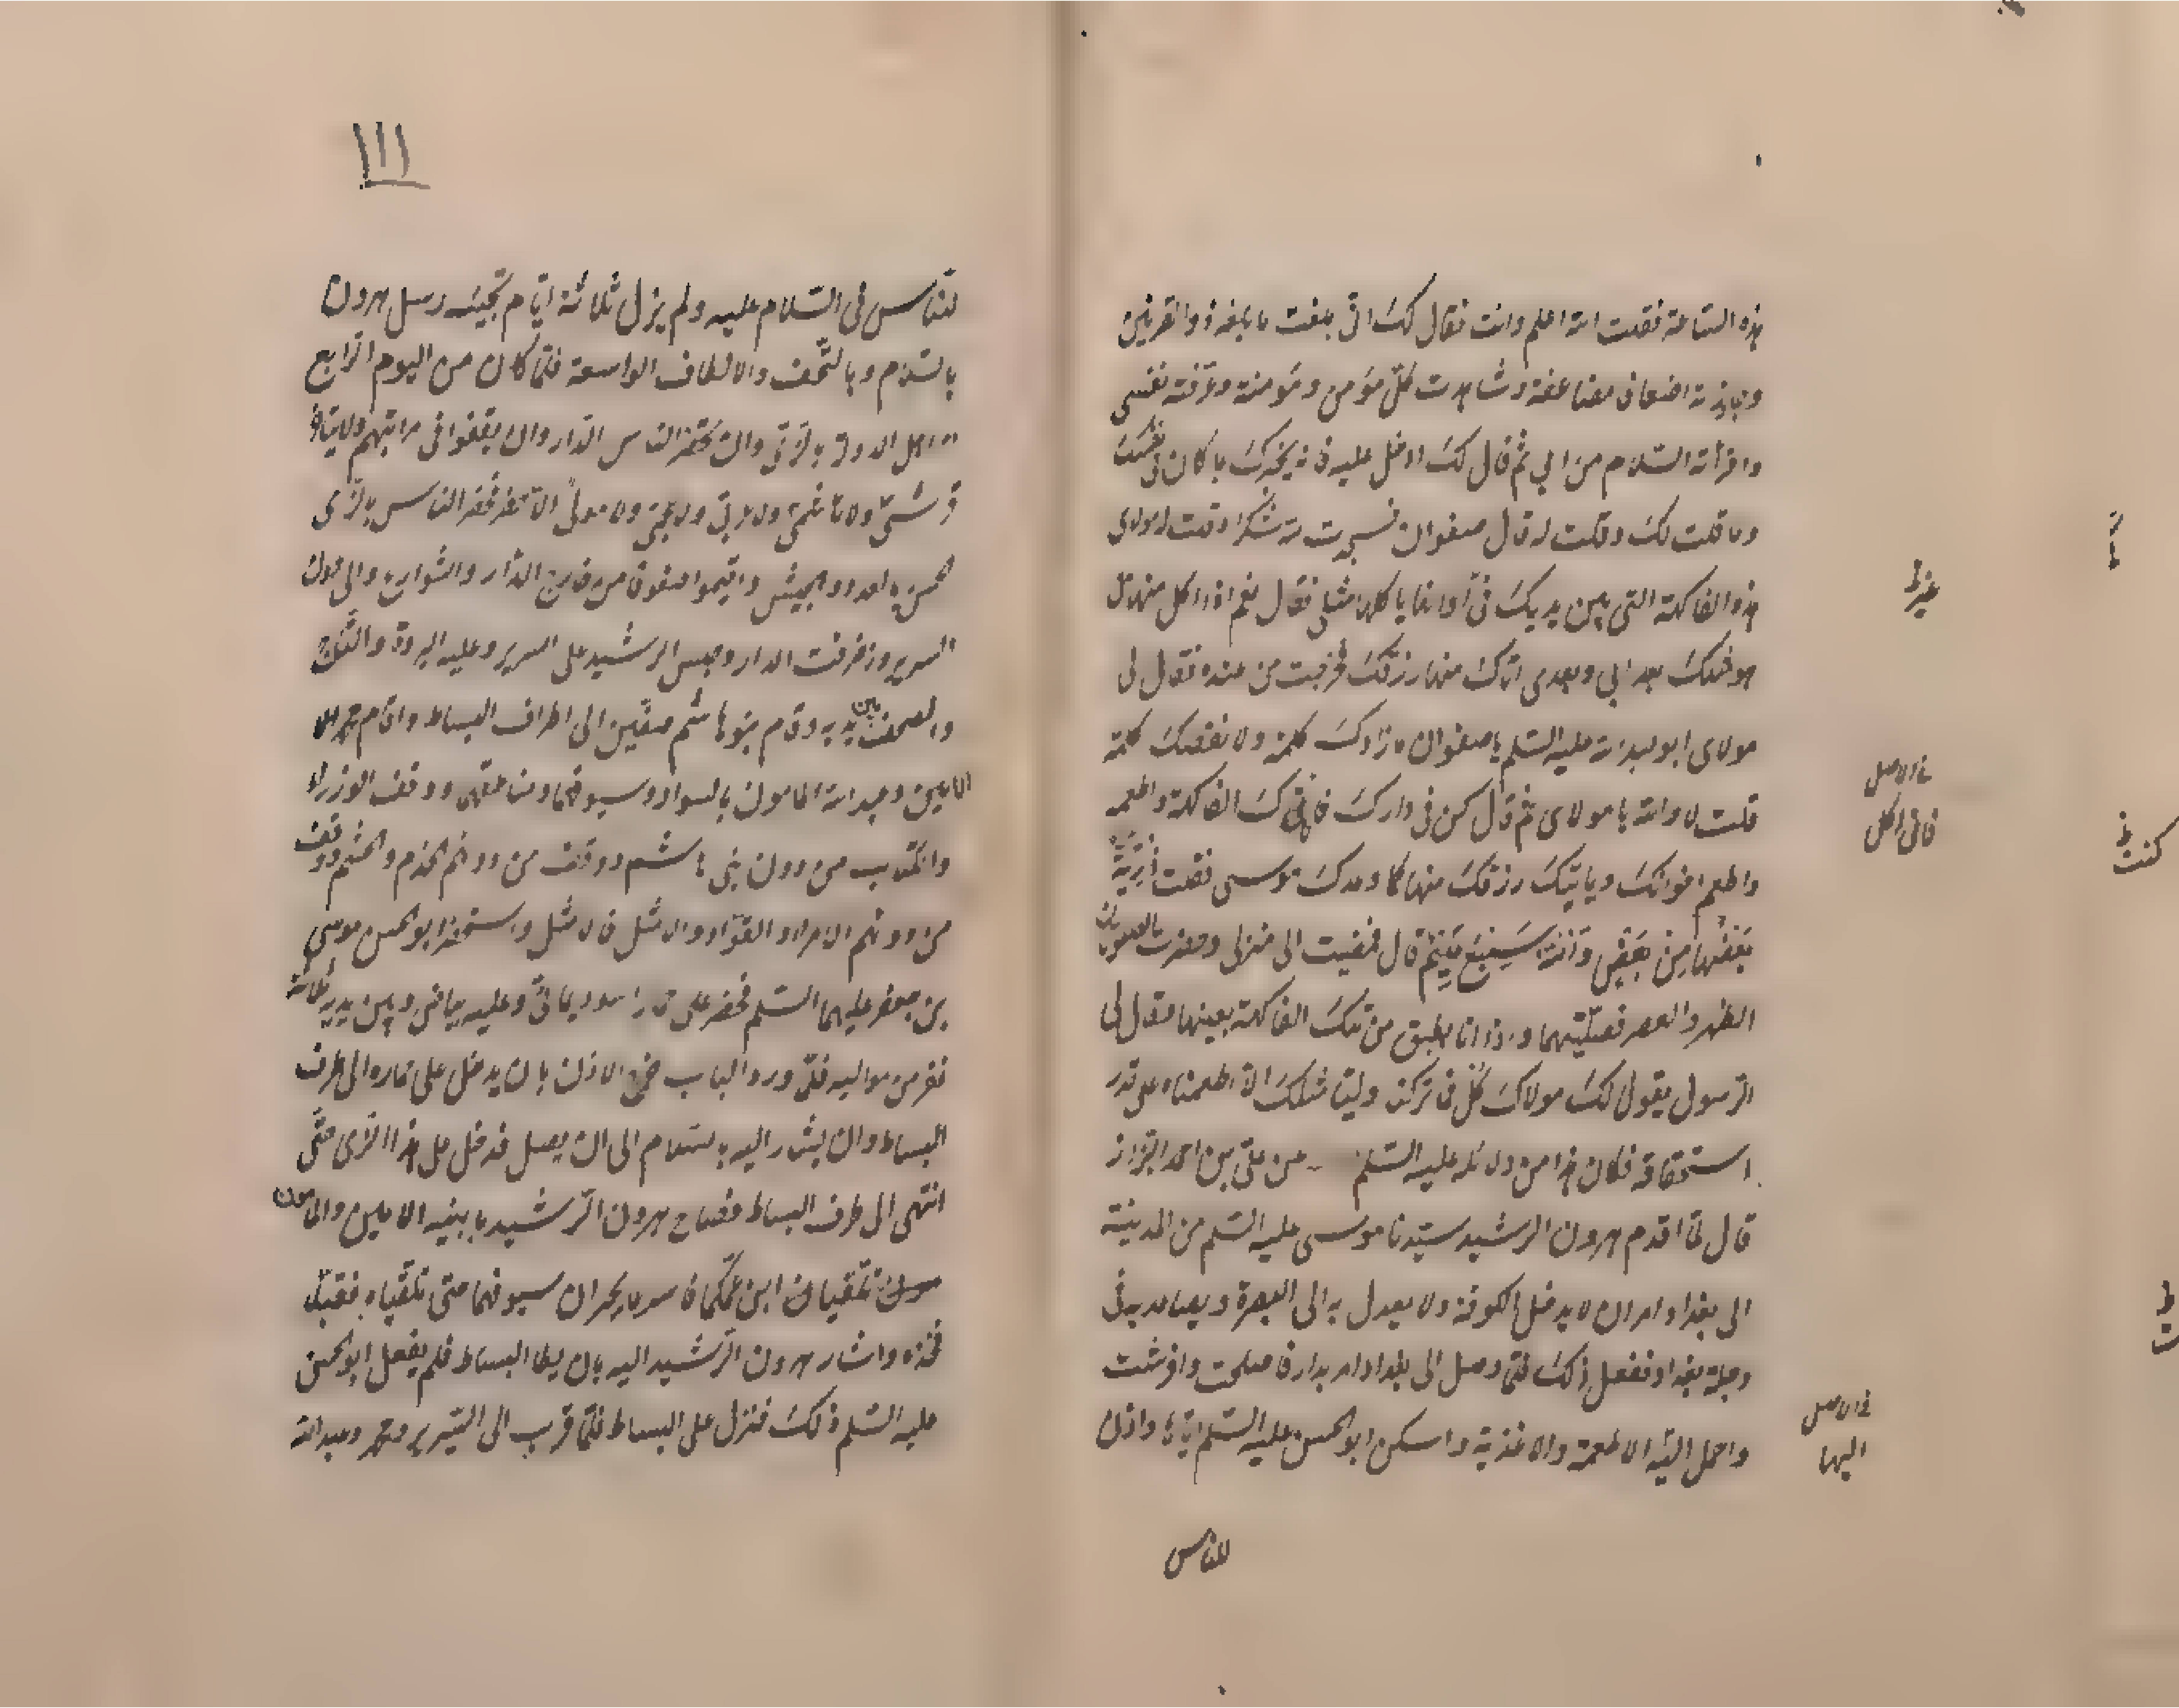 هذه الساعة فقلت الله اعلم وانت فقال لك انى بلغت ما بلغه ذو القرنين
وجاوزته اضعافا مضاعفة وشاهدت كل مؤمن ومؤمنة وعرفته نفسى
واقرأته السلام من ابي ثم قال لك ادخل عليه فانه يخبرك بما كان فى نفسك
وما قلت لك وقلت له قال صفوان فسجدت لله شكرا وقلت له مولاى
هذه الفاكهة التى بين يديك فى آوانها ياكلها مثلى فقال نعم اذا اكل منها من
هو مثلك بعد ابى وبعدى اتاك منها رزقك فخرجت من عنده فقال لى
مولاى ابو عبد الله عليه السلم يا صفوان ما زادك كلمة ولا نقصك كلمة
قلت لا والله يا مولاى ثم قال كن فى دارك فانى آكل الفاكهة واطعم
واطعم اخوانك وياتيك رزقك منها كما وعدك موسى فقلت ذُرِّيَّةً
بَعْضُهَا مِنْ بَعْضٍ وَاللهُ سَمِيعٌ عَلِيمٌ قال فمضيت الى منزلى وحضرت الصلوتان
الظهر والعصر فصليتهما واذا انا بطبق من تلك الفاكهة بعينها فقال لى
الرسول يقول لك مولاك كُل فما تركنا وليا مثلك الا اطعمناه على قدر
استحقاقه فكان هذا من دلائله عليه السلم عن على بن احمد البزاز
قال لما اقدم هرون الرشيد سيدنا موسى عليه السلم من المدينة
الى بغداد امر ان لا يدخل الكوفة ولا يعدل به الى البصرة ويصاعد به فى
دجلة بغداد ففعل ذلك فلما وصل الى بغداد امر بدار فاصلحت وافرشت
واحمل اليه الاطعمة والاغذية واسكن ابو الحسن عليه السلم اياها واذن
للناس
غير ظ
فى الاصل
فانى اكل
فى الاصل
اليها
كنت ظ
١١١
للناس فى السلام عليه ولم يزل ثلاثة ايام تجيئه رسل هرون
بالسلام وبالتحف والالطاف الواسعة فلما كان من اليوم الرابع
بالزى وان يحضر الناس الدار وان يقفوا فى مراتبهم ولا يبقى
قرشى ولا هاشمى ولا عربى ولا عجمى ولا مولى الا حضر فحضر الناس بالزى
الحسن والعدد والجيش واقيموا صفوفا من خارج الدار والشوارع والى حول
السرير وزخرفت الدار وجلس الرشيد على السرير وعليه البردة والتاج
والمصحف بين يديه وقام بنو هاشم صفين الى اطراف البساط واقام محمد
الامين وعبد الله المامون بالسواد وسيوفهما ومناطقهما ووقف الوزراء
والكتاب من دون بنى هاشم ووقف من دونهم الخدم والحشم ووقف
من دونهم الامراء والقواد والامثل فالامثل واستحضر ابو الحسن موسى
بن جعفر عليهما السلم فحضر على حمار اسود يمانى وعليه بياض وبين يديه ثلاثة
نفر من مواليه فلما ورد الباب خرج الاذن بان يدخل على حماره الى طرف
البساط وان يشار اليه بالسلام الى ان يصل فدخل على هذا الزى حتى
انتهى الى طرف البساط فصاح هرون الرشيد بابنيه الامين والمامون
تلقيان ابن عمكما فاسرعا يجران سيوفهما حتى تلقياه فقبلا
فخذه واشار هرون الرشيد اليه بان يطا البساط فلم يفعل ابو الحسن
عليه السلم ذلك فنزل على البساط فلما قرب الى السرير ومحمد وعبد الله